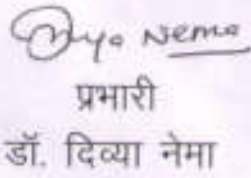 Divya Nema
प्रभारी
डॉ. दिव्या नेमा